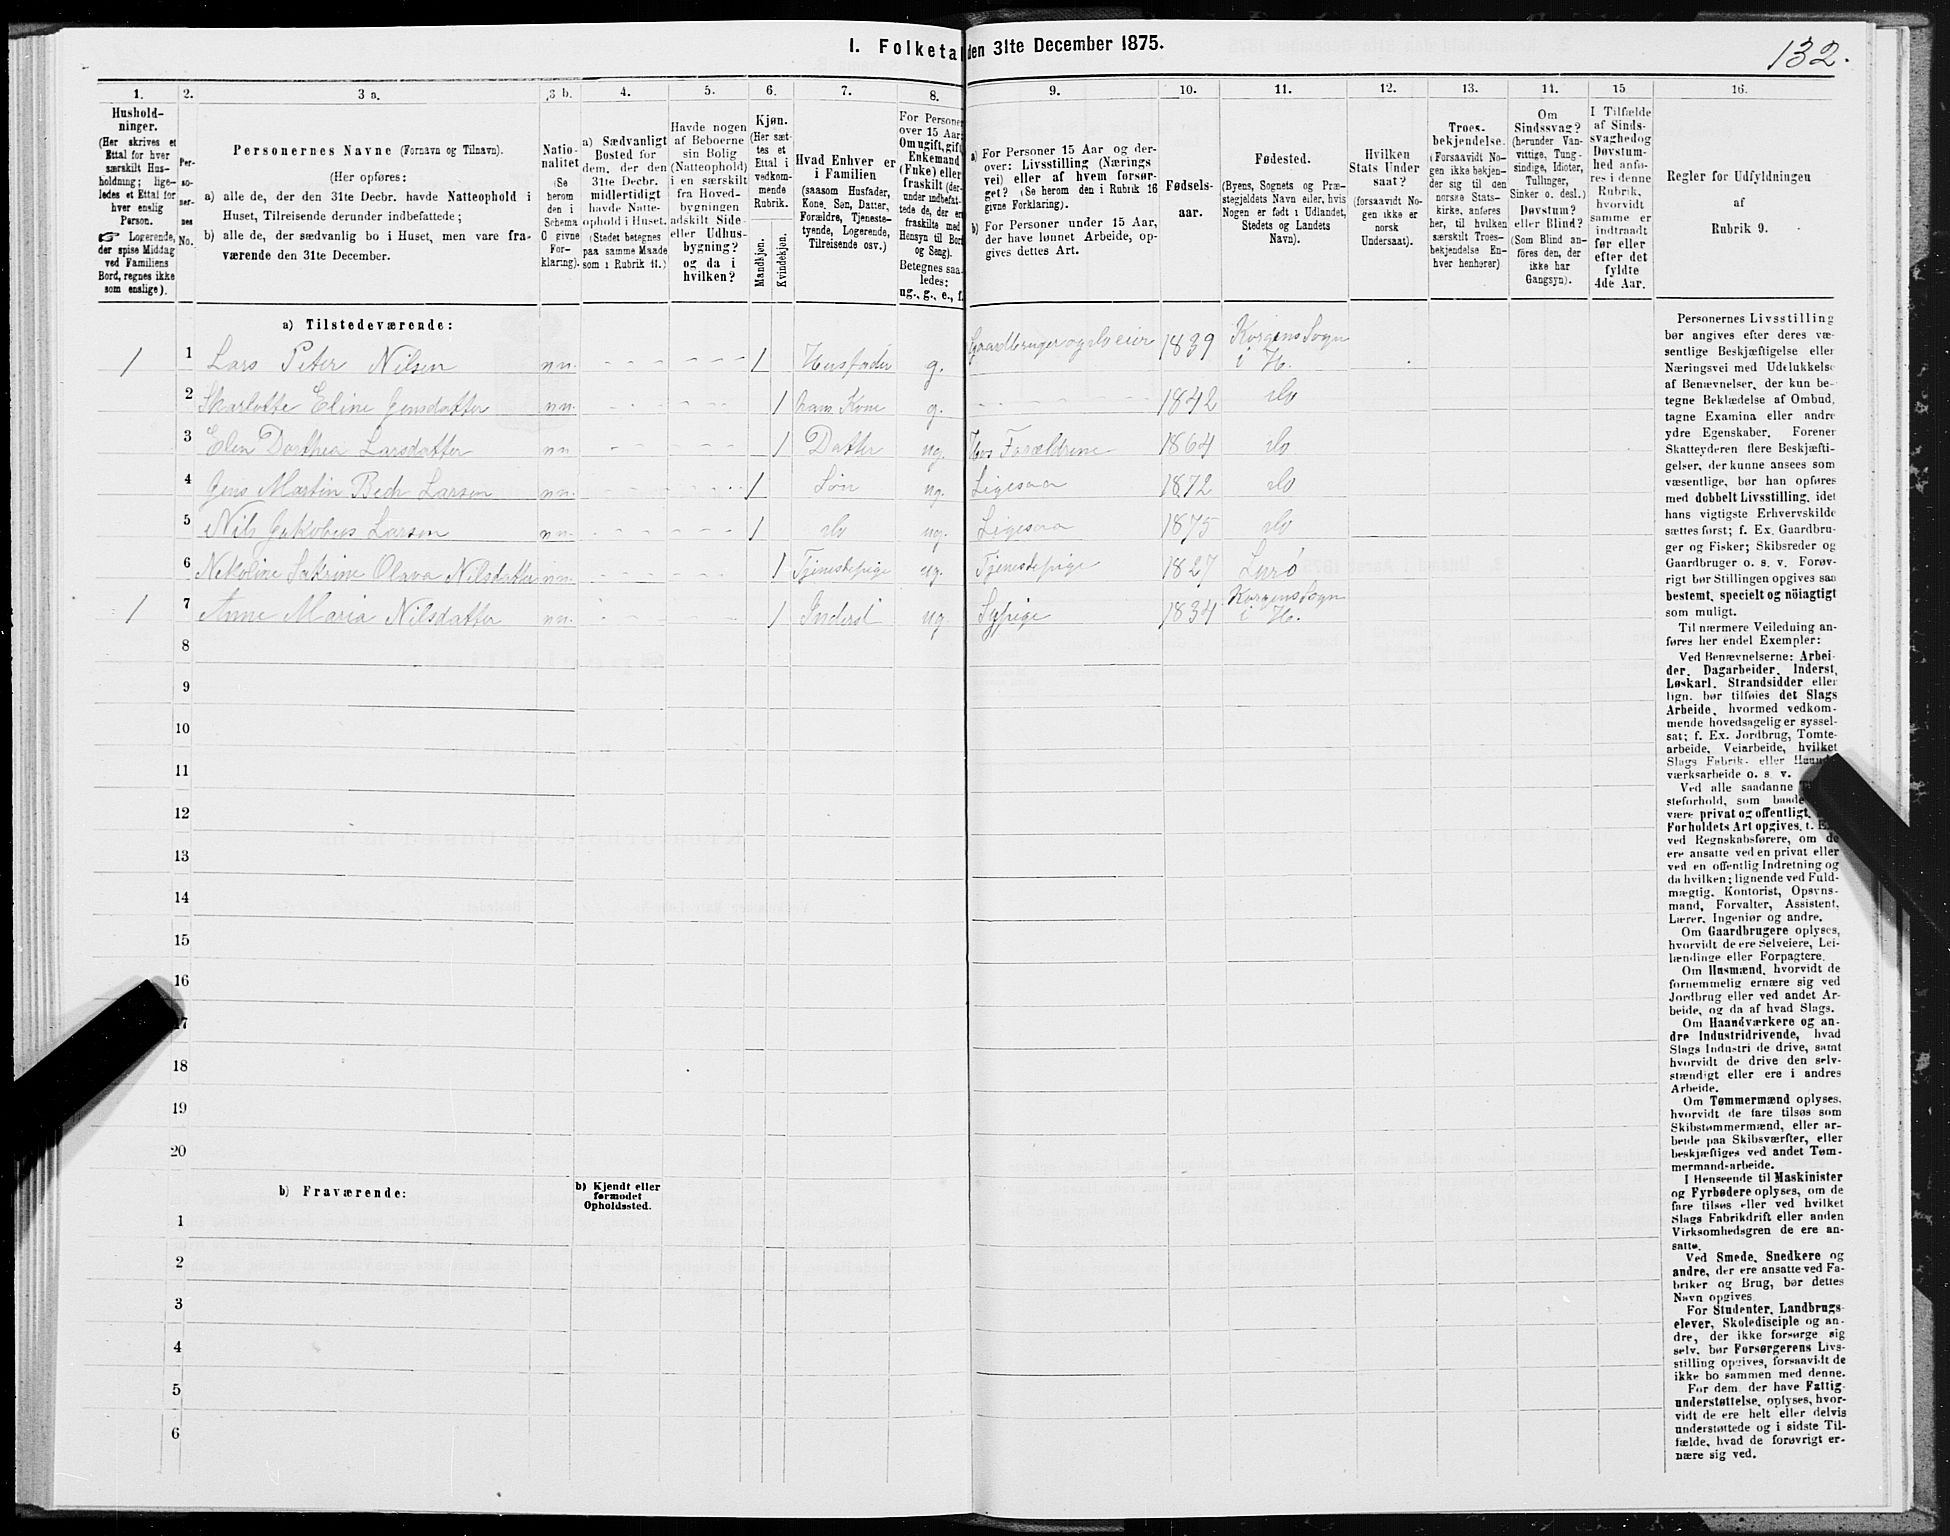 I. Folketal den 31te December 1875.
132.
1.
2.
3 a.
3 b.
4.
5.
6.
7.
8.
9.
10.
11.
12.
13.
14.
15
16.
Hushold-
ninger.
(Her skrives et
Ettal for hver
særskilt Hus-
holdning; lige-
ledes et Ettal for
hver enslig
Person.
☞ Logerende,
der spise Middag
ved Familiens
Bord, regnes ikke
som enslige).
Per-
so-
ner-
nes
No.
Personernes Navne (Fornavn og Tilnavn).
(Her opføres:
a) alle de, der den 31te Decbr. havde Natteophold i
Huset, Tilreisende derunder indbefattede;
b) alle de, der sædvanlig bo i Huset, men vare fra-
værende den 31te December.
Natio-
nalitet
(Se
herom
den i
Schema
C givne
For-
klaring).
a) Sædvanligt
Bosted for
dem, der den
31te Decbr.
midlertidigt
havde Natte-
ophold i Huset.
(Stedet betegnes
paa samme Maade
som i Rubrik 11.)
Havde nogen
af Beboerne
sin Bolig
(Natteophold)
i en særskilt
fra Hoved-
bygningen
adskilt Side-
eller Udhus-
bygning?
og da i
hvilken?
Kjøn.
(Her sæt-
tes et
Ettal i
vedkom-
mende
Rubrik.
Mandkjøn.
Kvindekjøn.
Hvad Enhver er
i Familien
(saasom Husfader,
Kone, Søn, Datter,
Forældre, Tjeneste-
tyende, Logerende,
Tilreisende osv.)
For Personer
over 15 Aar:
Om ugift, gift,
Enkemand
(Enke) eller
fraskilt (der-
under indbefat-
tede de, der ere
fraskilte med
Hensyn til Bord
og Seng).
Betegnes saa-
ledes:
ug., g., e., f.
a) For Personer 15 Aar og der-
over: Livsstilling (Nærings
vei) eller af hvem forsør-
get? (Se herom den i Rubrik 16
givne Forklaring).
b) For Personer under 15 Aar,
der have lønnet Arbeide, op-
gives dettes Art.
Fødsels-
aar.
Fødested.
(Byens, Sognets og Præ-
stegjeldets Navn eller, hvis
Nogen er født i Udlandet,
Stedets og Landets
Navn).
Hvilken
Stats Under
saat?
(forsaavidt No-
gen ikke er
norsk
Undersaat).
Troes-
bekjendelse.
(Forsaavidt No-
gen ikke bekjen-
der sig til den
norske Stats-
kirke, anføres
her, til hvilken
særskilt Troes-
bekjendelse En-
hver henhører)
Om
Sindssvag?
(herunder Van-
vittige, Tung-
sindige, Idioter,
Tullinger,
Sinker o. desl.)
Døvstum?
eller Blind?
(Som Blind an-
føres den, der
ikke har
Gangsyn).
I Tilfælde
af Sinds-
svaghed og
Døvstum-
hed anfø-
res i denne
Rubrik,
hvorvidt
samme er
indtraadt
før eller
efter det
fyldte
4de Aar.
Regler for Udfyldningen
af
Rubrik 9.
a) Tilstedeværende:
1 1 Lars Peter Nilsen nn. 1 Husfader g. Gaardbruger og selveier 1839 Korgens Sogn i H.
2 Sharlotte Eline Jensdatter nn. 1 hans Kone g. 1842 do
3 Elen Dorthea Larsdatter nn. 1 Datter ug. Hos Forældrene 1864 do
4 Jens Martin Bech Larsen nn. 1 Søn ug. Ligesaa 1872 do
5 Nils Jakobus Larsen nn. 1 do ug. Ligesaa 1875 do
6 Nekoline Sakrine Olava Nilsdatter nn. 1 Tjenestepige ug. Tjenestepige 1827 Lurö
1 7 Anne Maria Nilsdatter nn. 1 Inderst ug Sypige 1834 Korgens Sogn i H.
8
9
10
11
12
13
14
15
16
17
18
19
20
b) Fraværende:
b) Kjendt eller
formodet
Opholdssted.
1
2
3
4
5
6
Personernes Livsstilling
bør angives efter deres væ-
sentlige Beskjæftigelse eller
Næringsvei med Udelukkelse
af Benævnelser, der kun be-
tegne Beklædelse af Ombud,
tagne Examina eller andre
ydre Egenskaber. Forener
Skatteyderen flere Beskjæfti-
gelser, der kunne ansees som
væsentlige, bør han opføres
med dobbelt Livsstilling, idet
hans vigtigste Erhvervskilde
sættes først; f. Ex. Gaardbru-
ger og Fisker; Skibsreder og
Gaardbruger o. s. v. Forøv-
rigt bør Stillingen opgives saa
bestemt, specielt og nöiagtigt
som muligt.
Til nærmere Veiledning an-
føres her endel Exempler:
Ved Benævnelserne: Arbei-
der, Dagarbeider, Inderst,
Løskarl, Strandsidder eller
lign. bør tilføies det Slags
Arbeide, hvormed vedkom-
mende hovedsagelig er syssel-
sat; f. Ex. Jordbrug, Tomte-
arbeide, Veiarbeide, hvilket
Slags Fabrik- eller Haand-
værksarbeide o. s. v.
Ved alle saadanne
steforhold, som baade
være privat og offentligt,
Forholdets Art opgives, t. Ex.
ved Regnskabsførere, om de
ere ansatte ved en privat eller
ved en offentlig Indretning og
da hvilken; lignende ved Fuld-
mægtig, Kontorist, Opsyns-
mand, Forvalter, Assistent,
Lærer, Ingeniør og andre.
Om Gaardbrugere oplyses,
hvorvidt de ere Selveiere, Lei-
lændinge eller Forpagtere.
Om Husmænd, hvorvidt de
fornemmelig ernære sig ved
Jordbrug eller ved andet Ar-
beide, og da af hvad Slags.
Om Haandværkere og an-
dre Industridrivende, hvad
Slags Industri de drive, samt
hvorvidt de drive den selv-
stændigt eller ere i andres
Arbeide.
Om Tømmermænd oplyses,
hvorvidt de fare tilsøs som
Skibstømmermænd, eller ar-
beide paa Skibsværfter, eller
beskjæftiges ved andet Tøm-
mermand-arbeide.
I Henseende til Maskinister
og Fyrbødere oplyses, om de
fare tilsøs eller ved hvilket
Slags Fabrikdrift eller anden
Virksomhedsgren de ere an-
satte.
Ved Smede, Snedkere og
andre, der ere ansatte ved Fa-
briker og Brug, bør dettes
Navn opgives.
For Studenter, Landbrugs-
elever, Skoledisciple og an-
dre, der ikke forsørge sig
selv, bør Forsørgerens Livs-
stilling opgives, forsaavidt de
ikke bo sammen med denne.
For dem, der have Fattig-
understøttelse, oplyses, hvor-
vidt de ere helt eller delvis
understøttede og i sidste Til-
fælde, hvad de forøvrigt er-
nære sig ved.